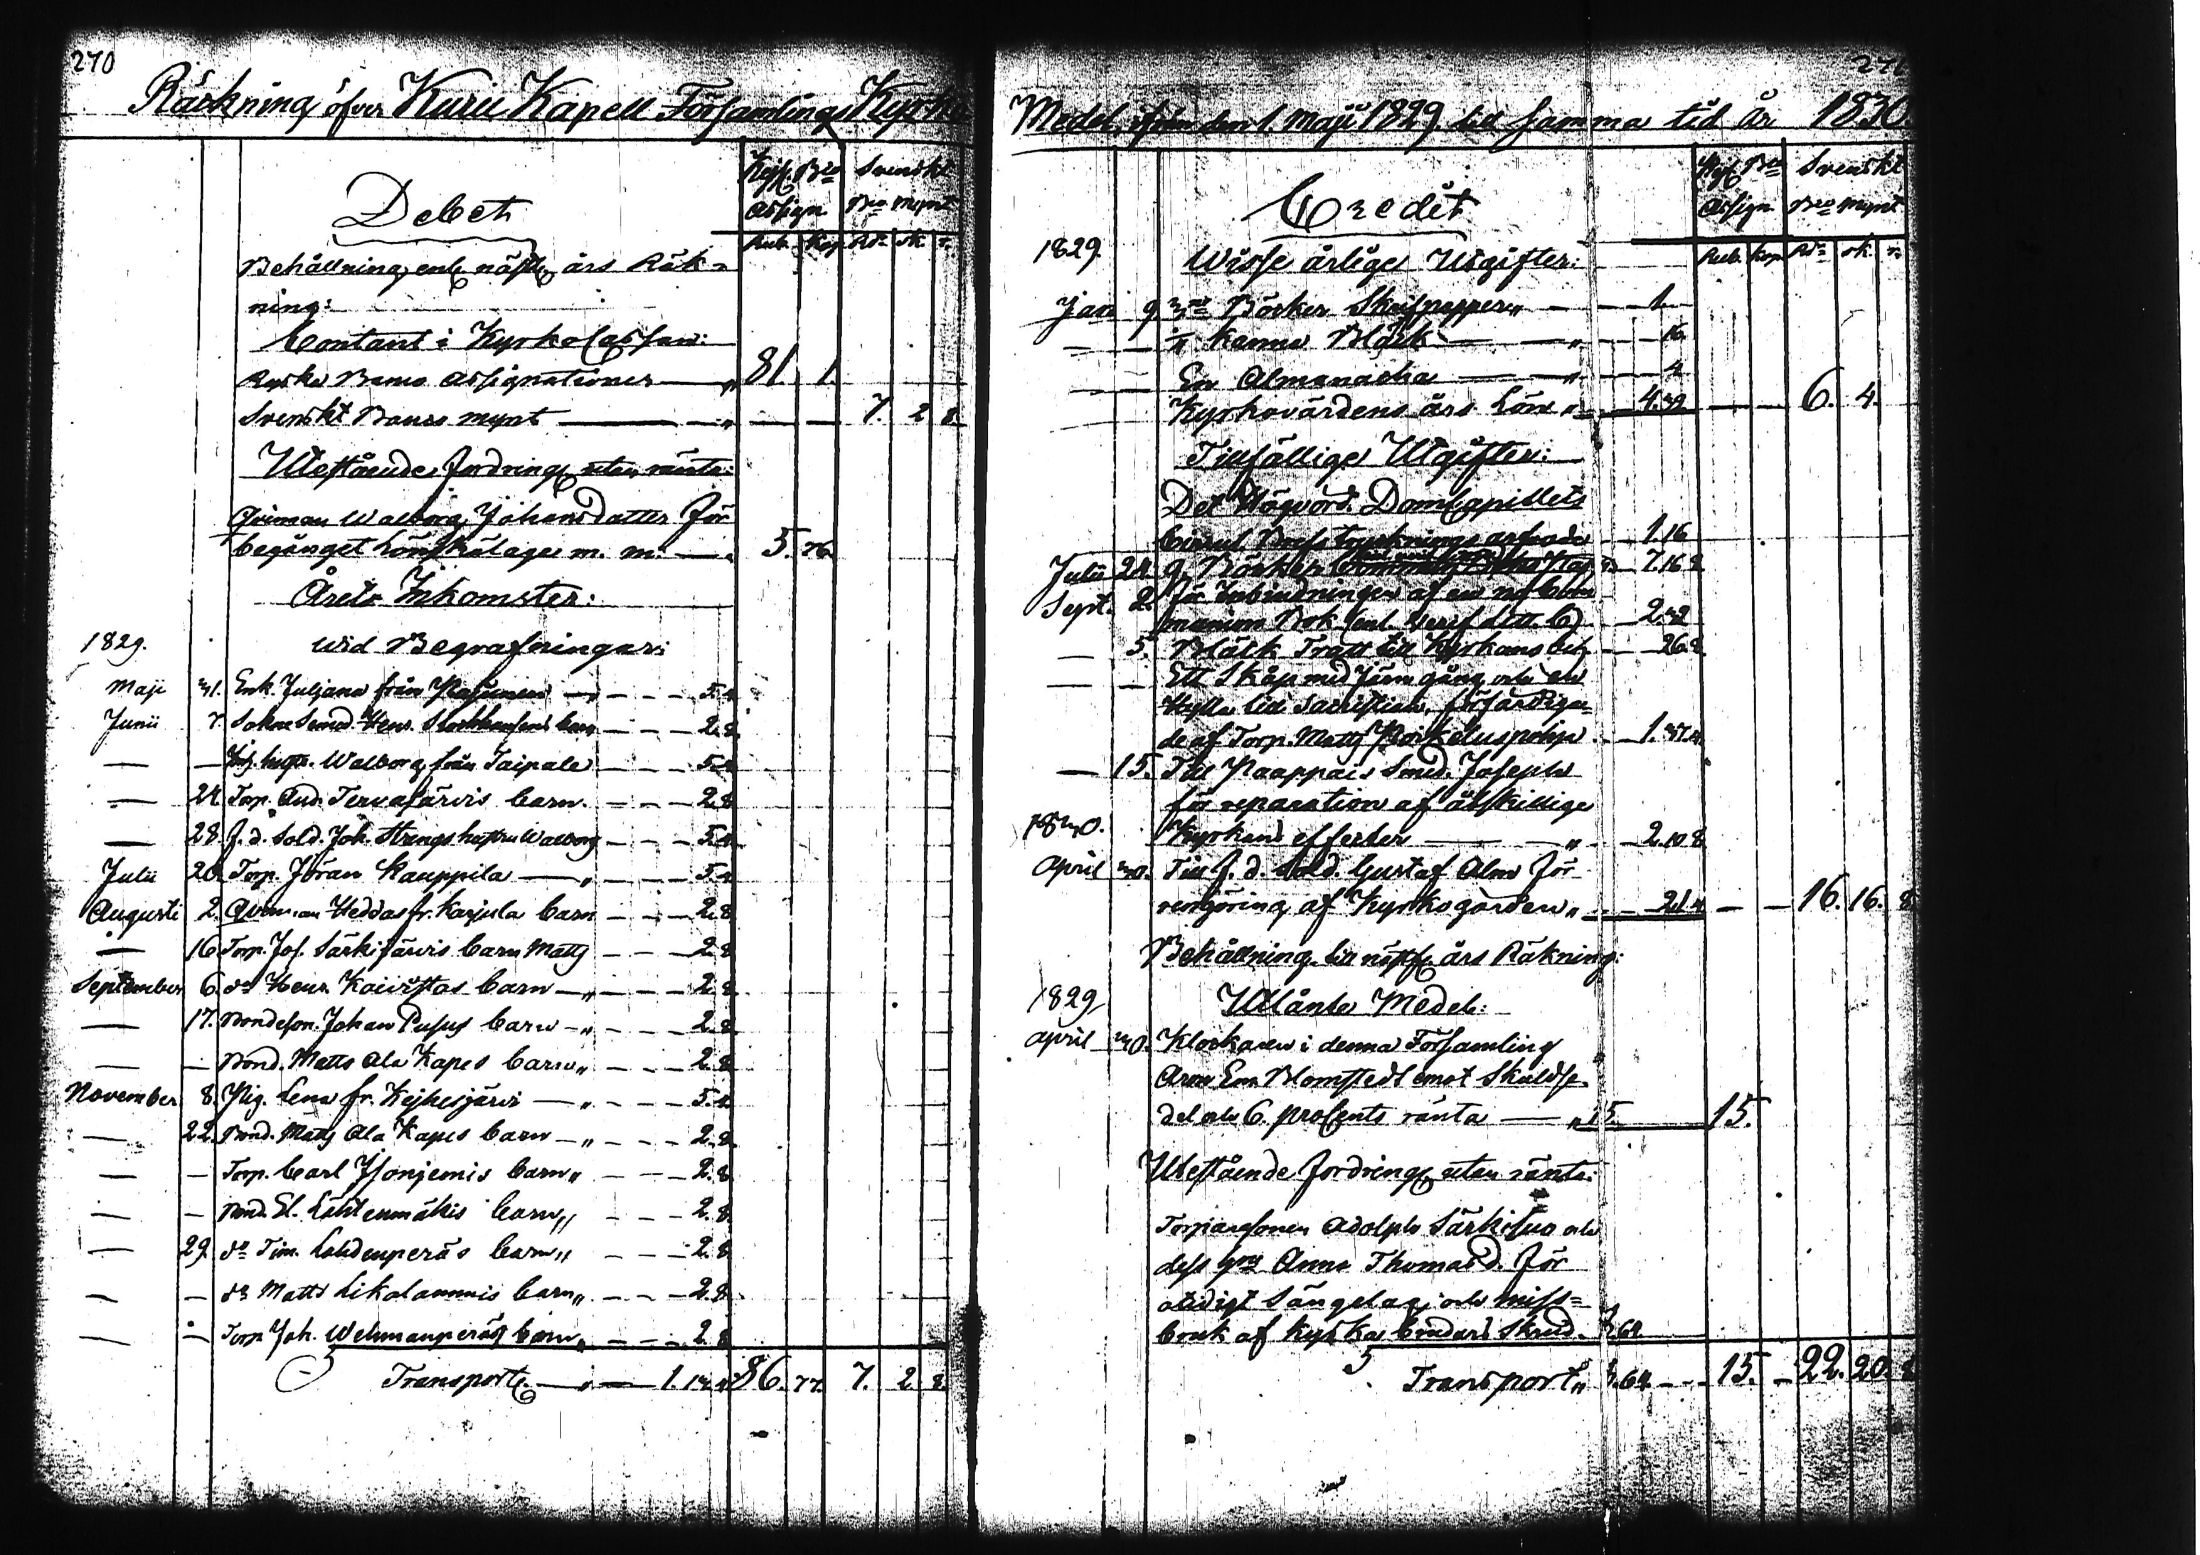 270
Räckning öfver Kuru Kapell Församlings Kyrko
Debet
Rysk Bco Assign
Svenskt Bco Mynt
Rub. Kop. Rd. sk. r.
Behållning enl. näst. års Räk-
ning:
Contant i Kyrko Cassan:
Ryska Banco Assignationer — „ 81. 1.
Svenskt Banco mynt — „ 7. 2 8.
Utestående fordring utan ränta:
Qvinnan Walborg Johansdatter för
begånget Lönskaläge m. m. — 5. 76
Årets Inkomster:
1829. wid Begrafningar:
Maji 31. Enk. Juljana från — 5.4
Junii 7. — 2.8.
— — hust. Walborg från Taipale — 5.4
— 24. Torp. And. Tervajärvis barn. — 2.8
— 28. f. d. Sold. Joh. Strengs hustru Walborg — 5.4
Julii 20. Torp. Jöran Kauppila — „ — 5.4
Augusti 2. Qvinnan Heddas fr. Karjula barn — 2.8
— 16. Torp. Jos. Särkijärvis barn Matts — 2.8
September 6. do Henr. Koivistos barn — „ — 2.8
— 17. Bondeson. Johan Pusus barn — „ — 2.8
— — Bond. Matts Ala Kapes barn „ — 2.8
November 8. Pig. Lena fr. Keihesjärvi — „ — 5.4
— 22. Bond. Matts Ala Kapes barn — „ — 2.8
— — Torp. Carl Isonjemis barn „ — 2.8
— — Bond. El. Lähtenmäkis barn „ — 2.8
— 29. do Tim. Lahdenperäs barn „ — 2.8
— — do Matts Likalammis barn „ — 2.8
— — Torp. Joh. Wehmanperäs barn „ — 2.8
Transport — 1. 86. 77. 7. 2. 8.
Medel, ifrån den 1. Maji 1829. till samma tid År 1830.
Credit
Rysk Bco Assign.
Svenskt Bco Mynt
Rub. Kop. Rd. sk. r.
1829. Wisse årlige Utgifter:
Jan 9. Böcker Skrifpapper „ — 1.
— — Kanna Bläck — „ — 16
— — En Almanacka — „ — 4
Kyrkovärdens års Lön „ — 4.32 — 6. 4.
Tillfällige Utgifter:
Det Högvörd. DomCapitlets
— 1.16
Julii 24. 9. Böcker — 7.16 8
Sept. 2. för Inbindningen af en ny Com-
munion Bok (enl. Verif. Litt. C) — 2.32
— 5. Bläck Tratt till Kyrkans — 26.8.
— — Ett Skåp med Järn gång och en
Hylla till Sacristian, förfärdiga-
de af Torp. Matts — 1.37.4
— 15. Till Paappais Smed. Joseph
för reparation af åtskillige
1830. Kyrkans effecter — „ — 2.10 8
April 30. Till f. d. Sold. Gustaf Alm för
rengöring af Kyrkogården „ — 21.4 — 16. 16. 8
Behållning till näst. års Räkning:
1829 Utlånte Medel:
April 30. Klockaren i denna Församling
Aron Em. Blomstedt emot Skuldse-
del och 6. procents ränta — „ 15. — 15.
Utestående fordring utan ränta:
Torparesonen Adolph Särkisuo och
dess qva Anna Thomasd. för
otidigt Sängelag och miss-
bruk af Kyrko Brudars Skrud. 64
Transport „ 64 — 15. — 22. 20. 8